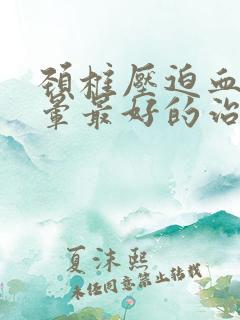 頚椎壓迫血
暈最好的治
夏沫熙
未任同意禁止转载